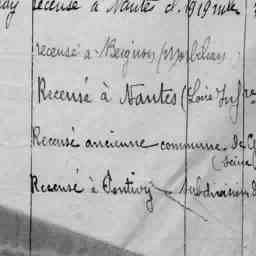 recensé à Nantes cl. 1919
recensé à Beignon (Morbihan)
Recensé à Nantes (Loire Infre
Recensé ancienne commune de
(Seine
Recensé à Pontivy subdivision